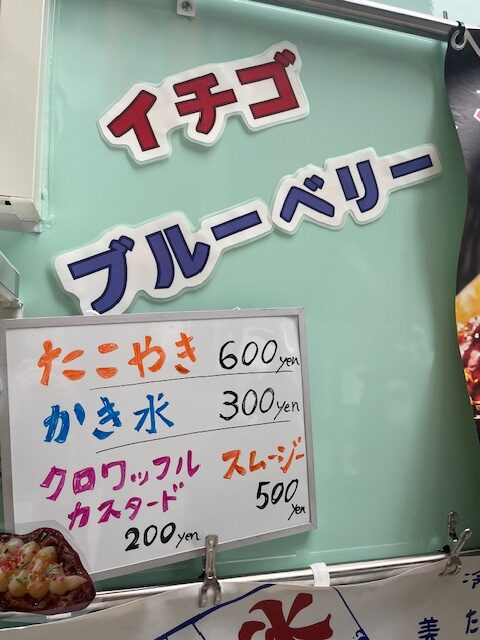 イチゴ
ブルーベリー
たこやき 600yen
かき水 300yen
クロワッフル スムージー
カスタード 500yen
200yen
冷
た
美